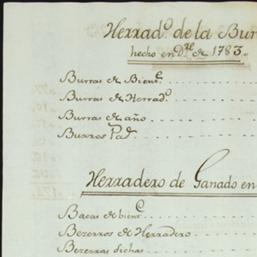 Herrad.º de la Bur
hecho en D.re de 1783.
Burras de Bien.e
Burras de Herrad.º
Burras de año
Burros Pad.s
Herradero de Ganado en
Bacas de bien.e
Bezerros de Herradero
Bezerras dichas